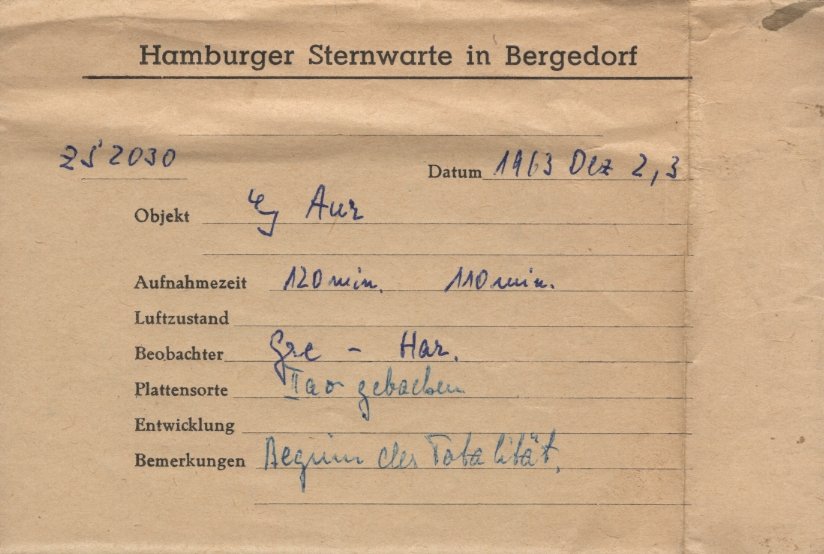 Hamburger Sternwarte in Bergedorf
ZS 2030
Datum 1963 Dez 2,3
Objekt ζ Aur
Aufnahmezeit 120 min. 110 min.
Luftzustand
Beobachter Gre - Har.
Plattensorte IIaO gebacken
Entwicklung
Bemerkungen Beginn der Totalität.